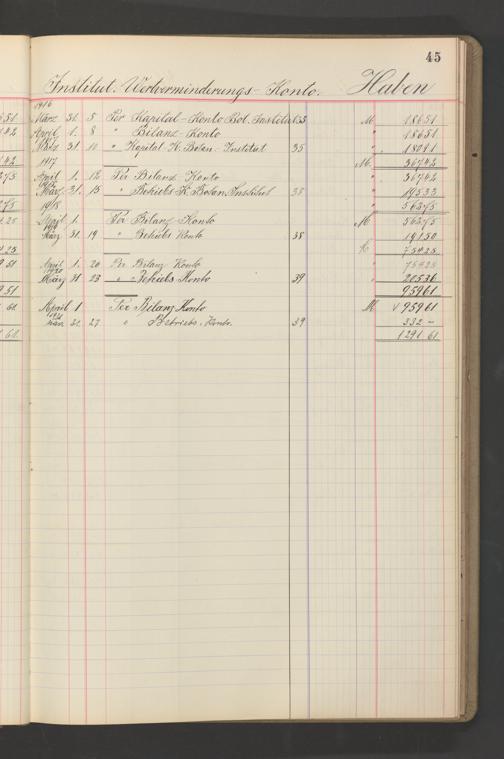 45
Institut. Wertverminderungs-Konto. Haben
1916
März 31. 5 Per Kapital-Konto Bot. Institut 33 M 186 51
April 1. 8 " Bilanz-Konto " 186 51
März 31. 11 " Kapital K. Botan. Institut 35 " 180 91
1917 M. 367 42
April 1. 12 Per Bilanz Konto " 367 42
März 31. 15 " Betriebs K. Botan. Institut 38 " 195 33
1918 " 562 75
April 1. Per Bilanz Konto M 562 75
1919
März 31. 19 " Betriebs Konto 38 191 50
754 25
April 1. 20 Per Bilanz Konto " 754 25
1920
März 31 23 " Betriebs Konto 39 " 205 36
959 61
April 1 Per Bilanz Konto M 959 61
1921
März 31. 27 " Betriebs-Konto. 39 332 -
1291 61